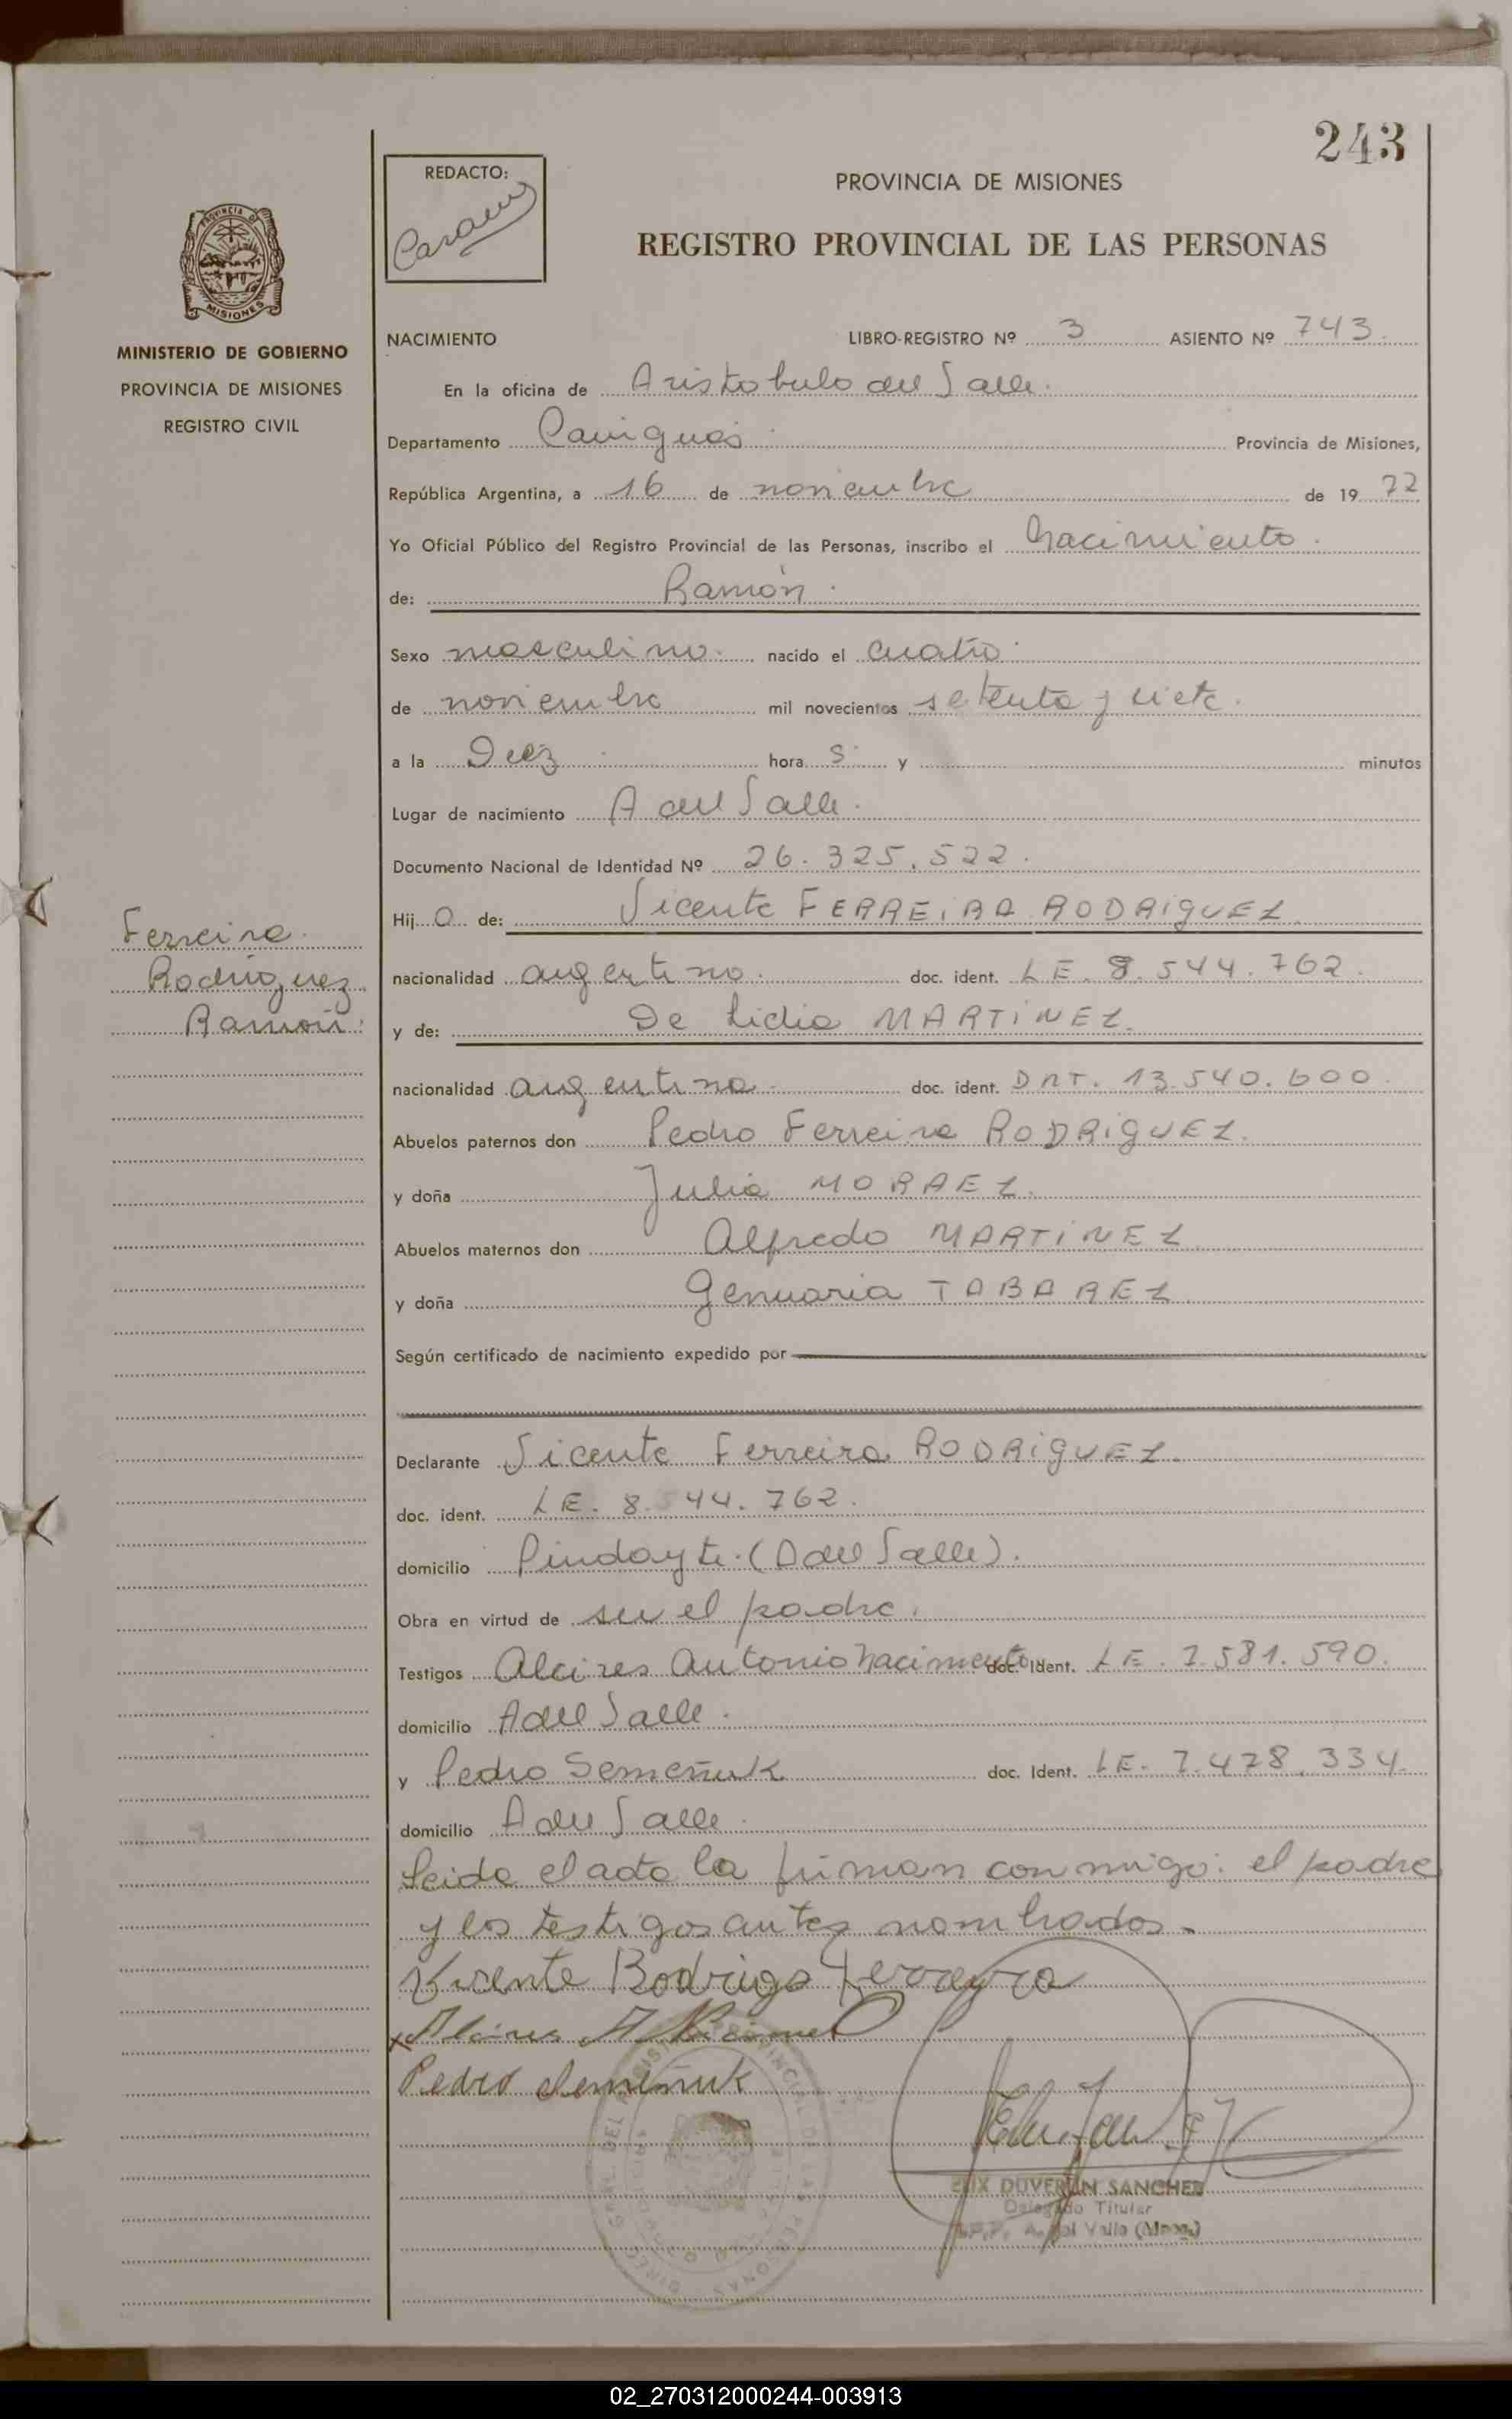 243
REDACTO:
PROVINCIA DE MISIONES
REGISTRO PROVINCIAL DE LAS PERSONAS
PROVINCIA DE
MISIONES
MINISTERIO DE GOBIERNO
PROVINCIA DE MISIONES
REGISTRO CIVIL
NACIMIENTO LIBRO-REGISTRO Nº 3 ASIENTO Nº 743.
En la oficina de Aristobulo del Valle.
Departamento Cainguás. Provincia de Misiones,
República Argentina, a 16 de noviembre de 19 77
Yo Oficial Público del Registro Provincial de las Personas, inscribo el nacimiento.
de: Ramón.
Sexo masculino. nacido el cuatro.
de noviembre mil novecientos setenta y siete.
a la Diez hora s. y minutos
Lugar de nacimiento A del Valle.
Documento Nacional de Identidad Nº 26.325.522.
Hij o de: Vicente FERREiRA RODRiguEZ
nacionalidad argentino. doc. ident. LE. 8.544.762.
y de: De Lidia MARTiNEZ.
nacionalidad argentina. doc. ident. DNI. 13.540.600.
Abuelos paternos don Pedro Ferreira RODRiguEZ.
y doña Julia MORAEZ.
Abuelos maternos don Alfredo MARTiNEZ
y doña Genuaria TABAREZ
Según certificado de nacimiento expedido por
Ferreira
Rodriguez
Ramón.
Declarante Vicente Ferreira RODRiguEZ.
doc. ident. LE. 8.544.762.
domicilio Pindayti. (A del Valle).
Obra en virtud de ser el padre.
Testigos Alcires Antonio Nacimento doc. Ident. LE. 7.581.590.
domicilio A del Valle.
y Pedro Semeñuk doc. Ident. LE. 7.478.334.
domicilio A del Valle.
Leida el acta la firman conmigo: el padre
y los testigos antes nombrados.
Vicente Rodrigo Ferreyra
x Alcires A
Pedro Semeñuk
DUVERAN SANCHEZ
Delegado Titular
02_270312000244-003913